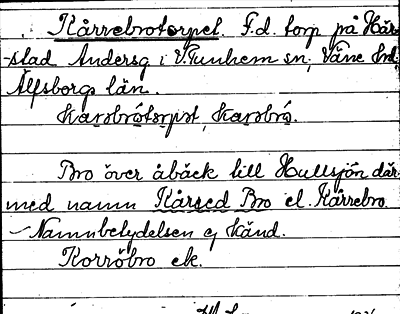 Kårrebrotorpet. F.d. torp på Hår-
stad Andersg i V.Tunhem sn, Väne hd,
Älfsborgs län.
Karsbrotorpet, Karsbro.
Bro över åbäck till Hullsjön där-
med namn Kårsed Bro el. Kårrebro.
Namnbetydelsen ej känd.
Korröbro ek.